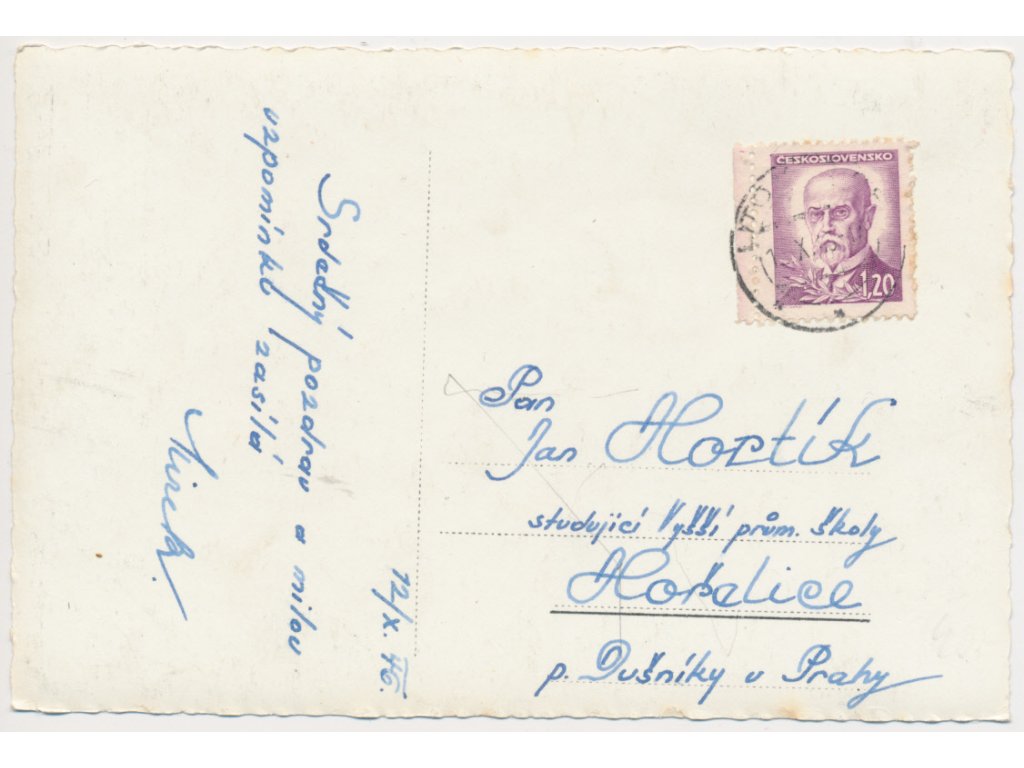 12/X. 46.
Srdečný pozdrav a milou
vzpomínku zasílá
Mirek.
ČESKOSLOVENSKO
1,20
Pan
Jan Hortík
studující Vyšší prům. školy
Hořelice
p. Dušníky u Prahy